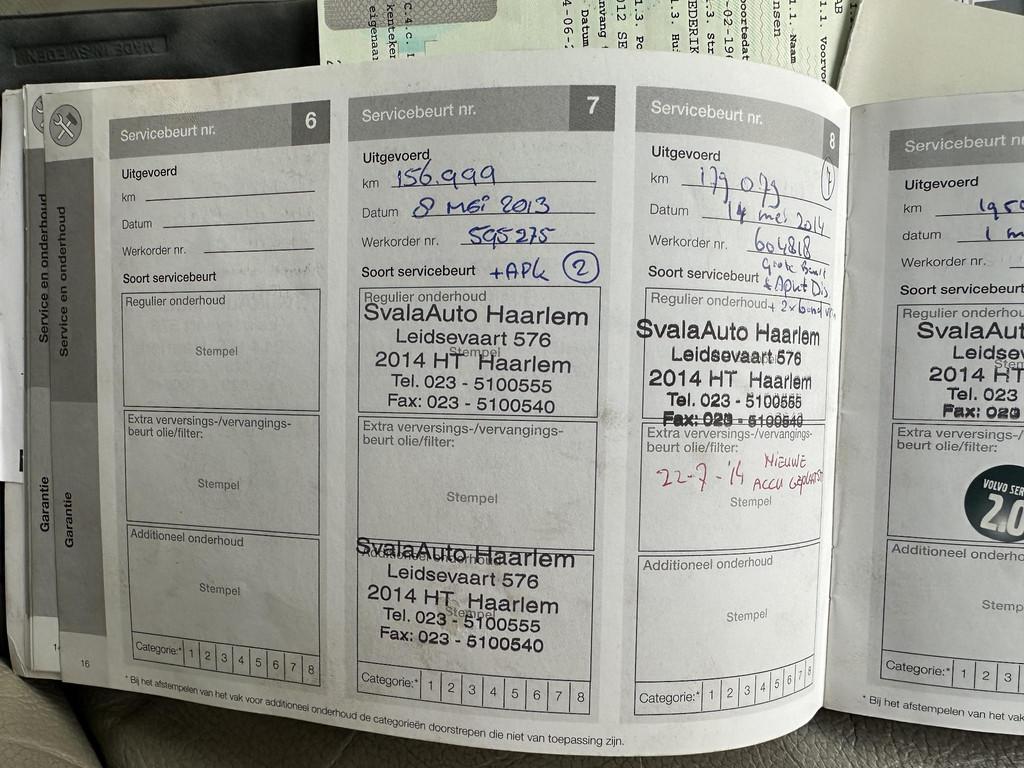 MADE IN SWEDEN
Service en onderhoud
Garantie
Service en onderhoud
Garantie
16
Servicebeurt nr. 6
Uitgevoerd
km
Datum
Werkorder nr.
Soort servicebeurt
Regulier onderhoud
Stempel
Extra verversings-/vervangings-
beurt olie/filter:
Stempel
Additioneel onderhoud
Stempel
Categorie:* 1 2 3 4 5 6 7 8
Servicebeurt nr. 7
Uitgevoerd
km 156.999
Datum 8 MEI 2013
Werkorder nr. 595275
Soort servicebeurt +APK 2
Regulier onderhoud
SvalaAuto Haarlem
Leidsevaart 576
Stempel
2014 HT Haarlem
Tel. 023 - 5100555
Fax: 023 - 5100540
Extra verversings-/vervangings-
beurt olie/filter:
Stempel
Additioneel onderhoud
SvalaAuto Haarlem
Leidsevaart 576
2014 HT Haarlem
Stempel
Tel. 023 - 5100555
Fax: 023 - 5100540
Categorie:* 1 2 3 4 5 6 7 8
Servicebeurt nr. 8
Uitgevoerd
km 179 079
Datum 14 mei 2014
Werkorder nr. 604818
Grote Beurt
Soort servicebeurt
Regulier onderhoud + 2x
SvalaAuto Haarlem
Leidsevaart 576
2014 HT Haarlem
Tel. 023 - 5100555
Fax: 023 - 5100540
Extra verversings-/vervangings-
beurt olie/filter:
22-7-'14 NIEUWE
ACCU GEPLAATST
Stempel
Additioneel onderhoud
Stempel
Categorie:* 1 2 3 4 5 6 7 8
* Bij het afstempelen van het vak voor additioneel onderhoud de categorieën doorstrepen die niet van toepassing zijn.
Servicebeurt
Uitgevoerd
km 195
datum 1
Werkorder nr.
Soort servicebeurt
Regulier onderhou
SvalaAut
Leidsev
2014 HT
Tel. 023
Fax: 023
Extra verversings-/
beurt olie/filter:
VOLVO SER
2.0
Additioneel onderho
Stemp
Categorie:* 1 2 3
* Bij het afstempelen van het vak